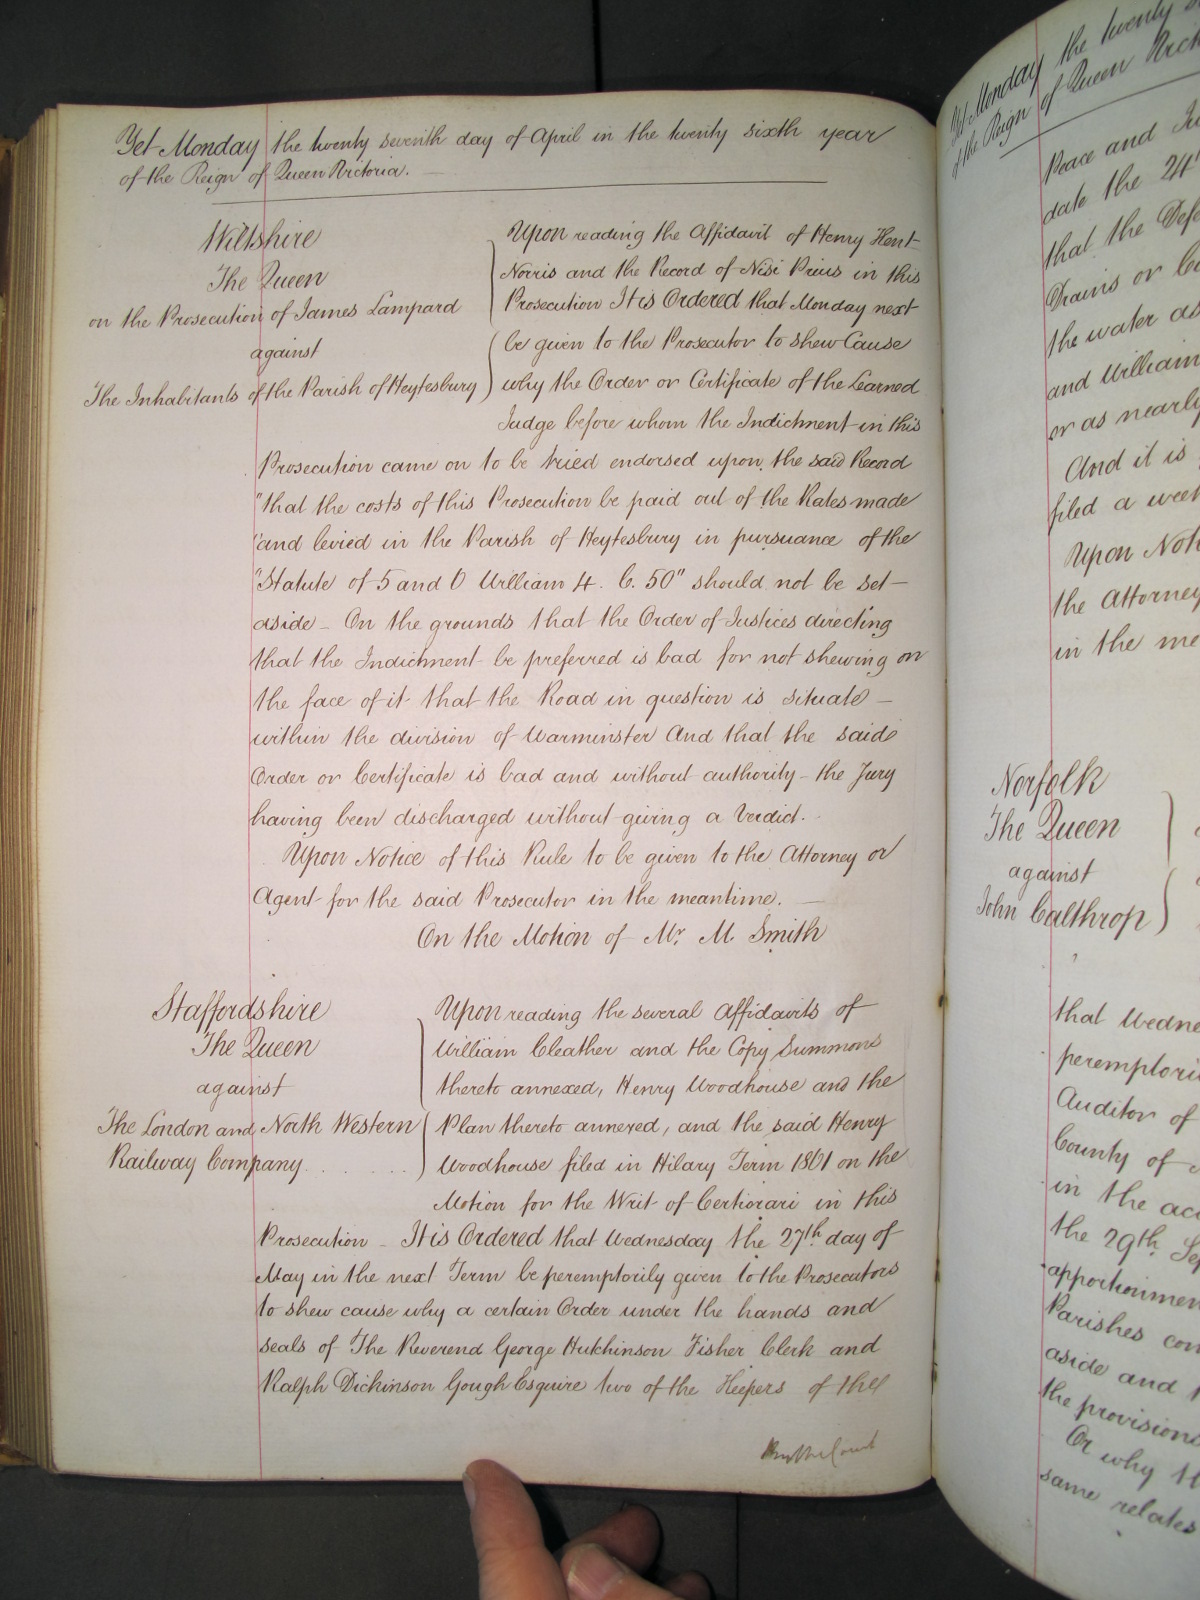 Yet Monday the twenty seventh day of April in the twenty sixth year
of the Reign of Queen Victoria.
Wiltshire
The Queen
on the Prosecution of James Lampard
against
The Inhabitants of the Parish of Heytesbury
Upon reading the Affidavit of Henry Kent
Norris and the Record of Nisi Prius in this
Prosecution It is Ordered that Monday next
be given to the Prosecutor to shew Cause
why the Order or Certificate of the Learned
Judge before whom the Indictment in this
Prosecution came on to be tried endorsed upon the said Record
"that the costs of this Prosecution be paid out of the Rates made
"and levied in the Parish of Heytesbury in pursuance of the
"Statute of 5 and 6 William 4. C. 50" should not be set
aside - On the grounds that the Order of Justices directing
that the Indictment be preferred is bad for not shewing on
the face of it that the Road in question is situate
within the division of Warminster And that the said
Order or Certificate is bad and without authority - the Jury
having been discharged without giving a Verdict.
Upon Notice of this Rule to be given to the Attorney or
Agent for the said Prosecutor in the meantime.
On the Motion of Mr. M. Smith
Staffordshire
The Queen
against
The London and North Western
Railway Company
Upon reading the several Affidavits of
William Cleather and the Copy Summons
thereto annexed, Henry Woodhouse and the
Plan thereto annexed, and the said Henry
Woodhouse filed in Hilary Term 1861 on the
Motion for the Writ of Certiorari in this
Prosecution - It is Ordered that Wednesday the 27th day of
May in the next Term be peremptorily given to the Prosecutors
to shew cause why a certain Order under the hands and
seals of The Reverend George Hutchinson Fisher Clerk and
Ralph Dickinson Gough Esquire two of the Keepers of the
By the Court
Yet Monday the twenty
of the Reign of Queen Vict
Peace and
date the 24
that the Def
Drains or
the water as
and William
or as nearly
And it is
filed a week
Upon Noti
the Attorney
in the me
Norfolk
The Queen
against
John Calthrop
that Wedne
peremptori
Auditor of
County of
in the acc
the 29th Sep
apportionmen
Parishes con
aside and
the provisions
Or why th
same relates